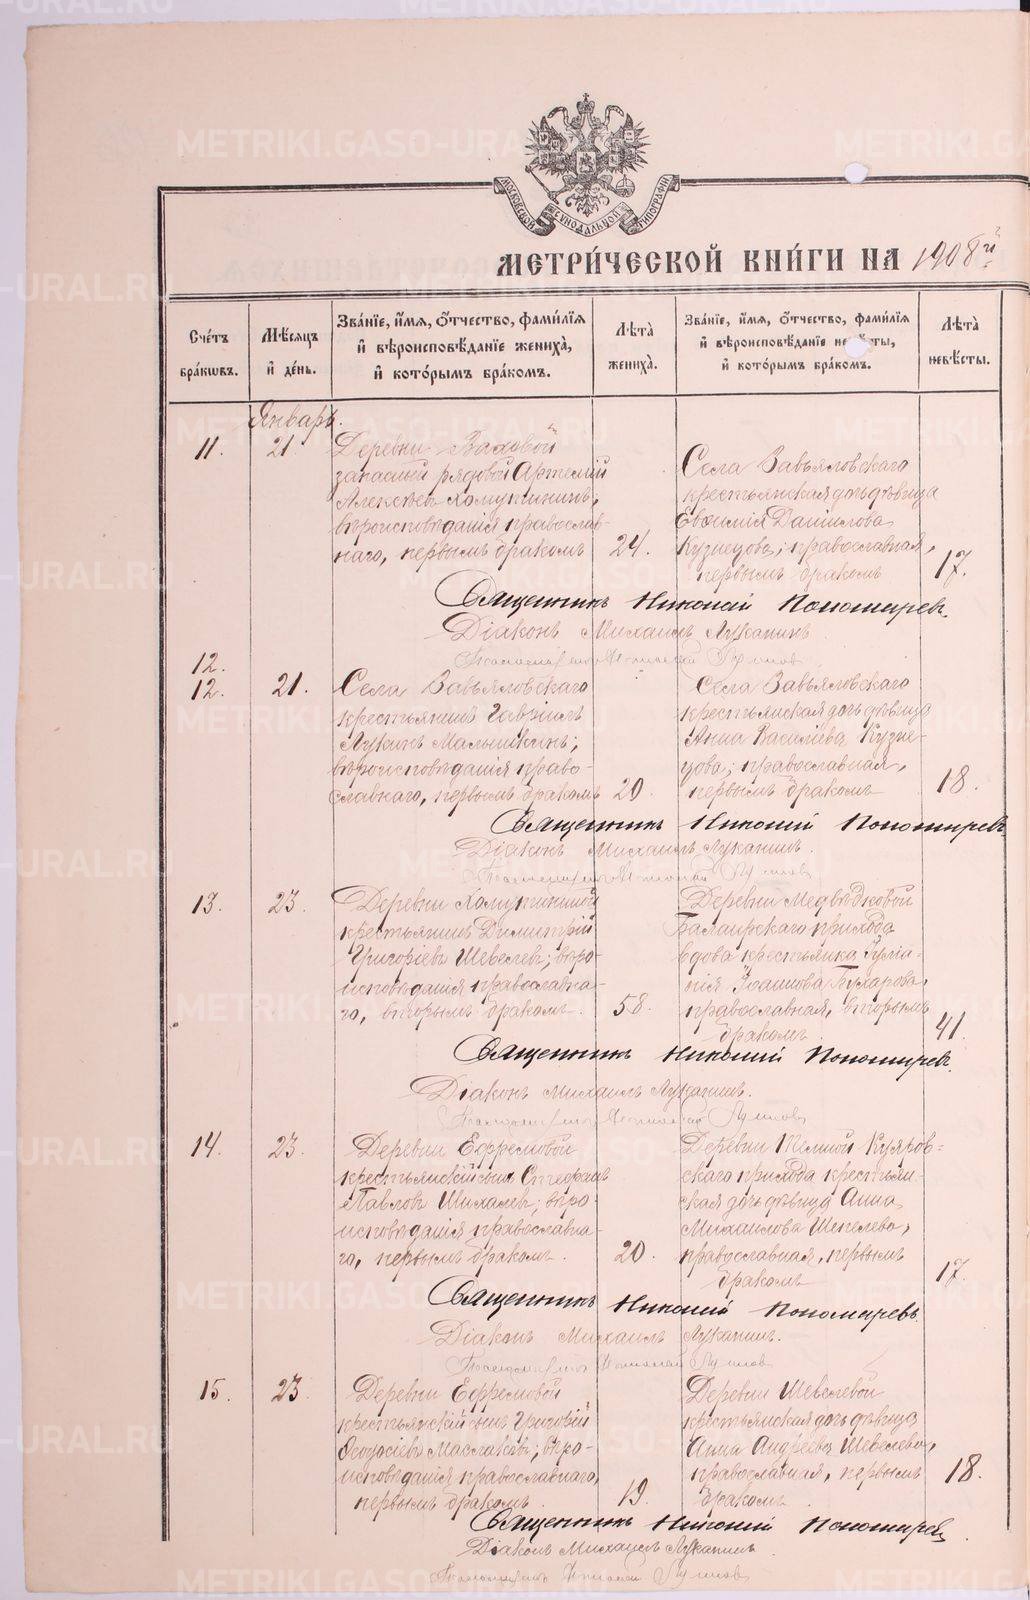 МОСКОВСКОЙ СѴНОДАЛЬНОЙ ТИПОГРАФІИ
МЕТРИ́ЧЕСКОЙ КНИ́ГИ НА 1908 й
Сче́тъ бра́кωвъ.
Мѣ́сяцъ и҆ де́нь.
Зва́нїе, и҆́мя, ѻ҆́тчество, фами́лїя и҆ вѣроисповѣ́данїе жениха̀, и҆ кото́рымъ бра́комъ.
Лѣта̀ жениха̀.
Зва́нїе, и҆́мя, ѻ҆́тчество, фами́лїя и҆ вѣроисповѣ́данїе невѣ́сты, и҆ кото́рымъ бра́комъ.
Лѣта̀ невѣ́сты.
Январь.
11.
21.
Деревни Ваховой
запасный рядовой Артемий
Алексѣевъ Хомутининъ,
вѣроисповѣданія православ-
наго, первымъ бракомъ
24.
Села Завьяловскаго
крестьянская дочь дѣвица
Евѳимія Даніилова
Кузнецова; православная,
первымъ бракомъ
17.
Священникъ Николай Пономаревъ
Діаконъ Михаилъ Луканинъ.
12.
12.
21.
Села Завьяловскаго
крестьянинъ Гавріилъ
Лукинъ Малышкинъ;
вѣроисповѣданія право-
славнаго, первымъ бракомъ
20.
Села Завьяловскаго
крестьянская дочь дѣвица
Анна Василіева Кузне-
цова; православная,
первымъ бракомъ
18.
Священникъ Николай Пономаревъ
Діаконъ Михаилъ Луканинъ.
13.
23.
Деревни Хомутининой
крестьянинъ Димитрій
Григоріевъ Шевелевъ; вѣро-
исповѣданія православна-
го, вторымъ бракомъ.
58.
Деревни Медвѣдковой
Балаирскаго прихода
вдова крестьянка Іуліа-
нія Іоаннова Бухарова,
православная, вторымъ
бракомъ
41.
Священникъ Николай Пономаревъ.
Діаконъ Михаилъ Луканинъ.
14.
23.
Деревни Ефремовой
крестьянскій сынъ Стефанъ
Павловъ Шихалевъ; вѣро-
исповѣданія православна-
го, первымъ бракомъ.
20.
Деревни Темной Куяров-
скаго прихода крестьян-
ская дочь дѣвица Анна
Михаилова Шепелева,
православная, первымъ
бракомъ
17.
Священникъ Николай Пономаревъ.
Діаконъ Михаилъ Луканинъ.
15.
23.
Деревни Ефремовой
крестьянскій сынъ Григорій
Ѳеодосіевъ Маслаковъ; вѣро-
исповѣданія православнаго,
первымъ бракомъ.
19.
Деревни Шевелевой
крестьянская дочь дѣвица
Анна Андреева Шевелева,
православная, первымъ
бракомъ
18.
Священникъ Николай Пономаревъ
Діаконъ Михаилъ Луканинъ.
METRIKI.GASO-URAL.RU